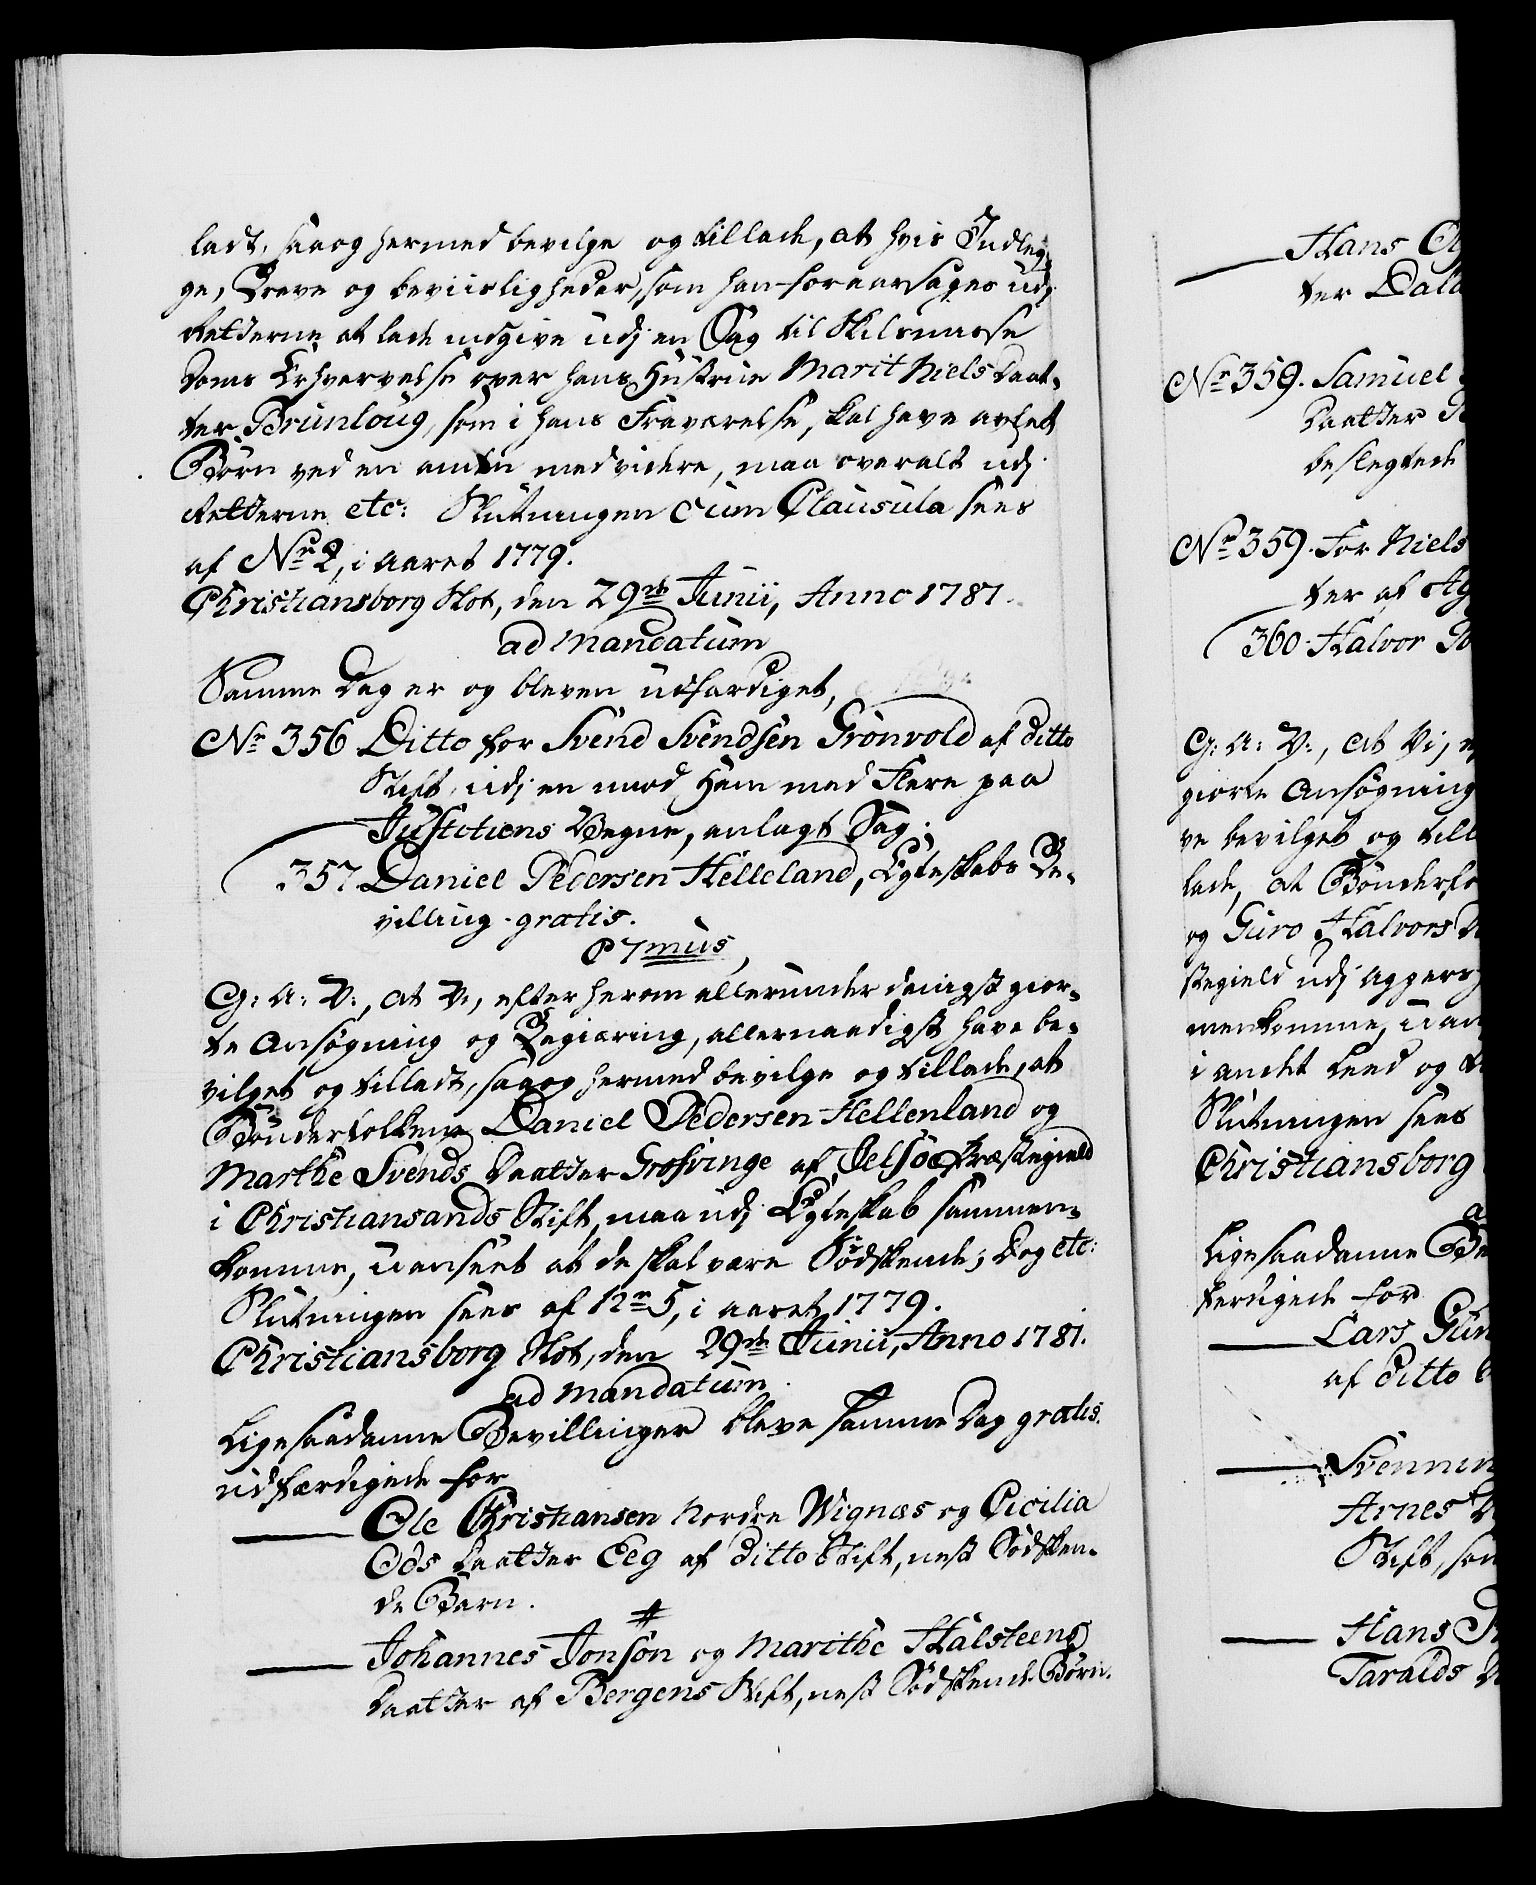 ladt, saa og hermed bevilge og tillade, at hvis Indleg-
ge, Breve og beviisligheder, som han foraarsages udj
Retterne at lade indgive udj en Sag til Skilsmisse
Doms Erhvervelse over hans Hustrue Marit Niels Daat-
ter Brunloug, som i hans Fraværelse, skal have avlet
Børn ved en anden med videre, maa overalt udj
Retterne etc: Slutningen cum Clausula sees
af Nr 2, i aaret 1779.
Christiansborg Slot, den 29de Junii, Anno 1781.
ad mandatum
Samme Dag er og bleven udfærdiget,
Nr 356 Ditto for Svend Svendsen Grönvold af ditto
Stift, udj en mod Ham med Flere paa
Justitiens Vegne, anlagt Sag.
357 Daniel Pedersen Helleland, Egteskabs Be-
villing. gratis.
P 7mus,
G: A: V:, at Vi, efter herom allerunderdanigst gior-
te Ansøgning og Begiæring, allernaadigst have be-
vilget og tilladt, saa og hermed bevilge og tillade, at
Bønderfolkene Daniel Pedersen Hellenland og
Marthe Svends Daatter Grosvinge af Jelsöe Præstegield
i Christiansands Stift, maa udj Egteskab sammen-
komme, uanseet at de skal være Sødskende; Dog etc:
Slutningen sees af Nr 5, i aaret 1779.
Christiansborg Slot, den 29de Junii, Anno 1781.
ad mandatum.
Ligesaadanne Bevillinger bleve samme Dag gratis.
udfærdigede for
Ole Christiansen Nordre Wignæs og Cicilia
Ods Daatter Eeg af ditto Stift, nest Sødsken-
de Børn.
Johannes Jonsön og Marithe Halsteens
Daatter af Bergens Stift, nest Sødskende Børn.
Hans
ter
Nr 359. Samuel
Daatter
beslegtede
Nr 359. For Niels
ter af
360. Halvor
G: A: V:, at Vi,
giorte Ansøgning
ve bevilget og
lade, at
og Guro Halvors
stegield udj
menkomme,
i andet Leed og
Slutningen sees
Christiansborg
Ligesaadanne
færdigede for
Lars
af ditto
Arnes
Stift,
Hans
Taralds